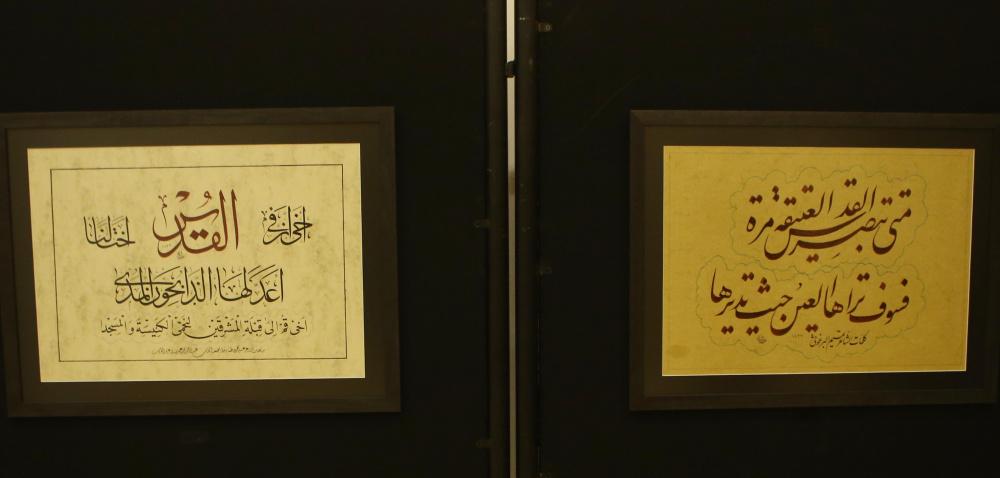 أخي إن في القدس أختا لنا
أعد لها الذابحون المدى
أخي قم إلى قبلة المشرقين لنحمي الكنيسة والمسجدا
متى تبصر القدس العتيقة مرة
فسوف تراها العين حيث تديرها
كلمات الشاعر تميم البرغوثي